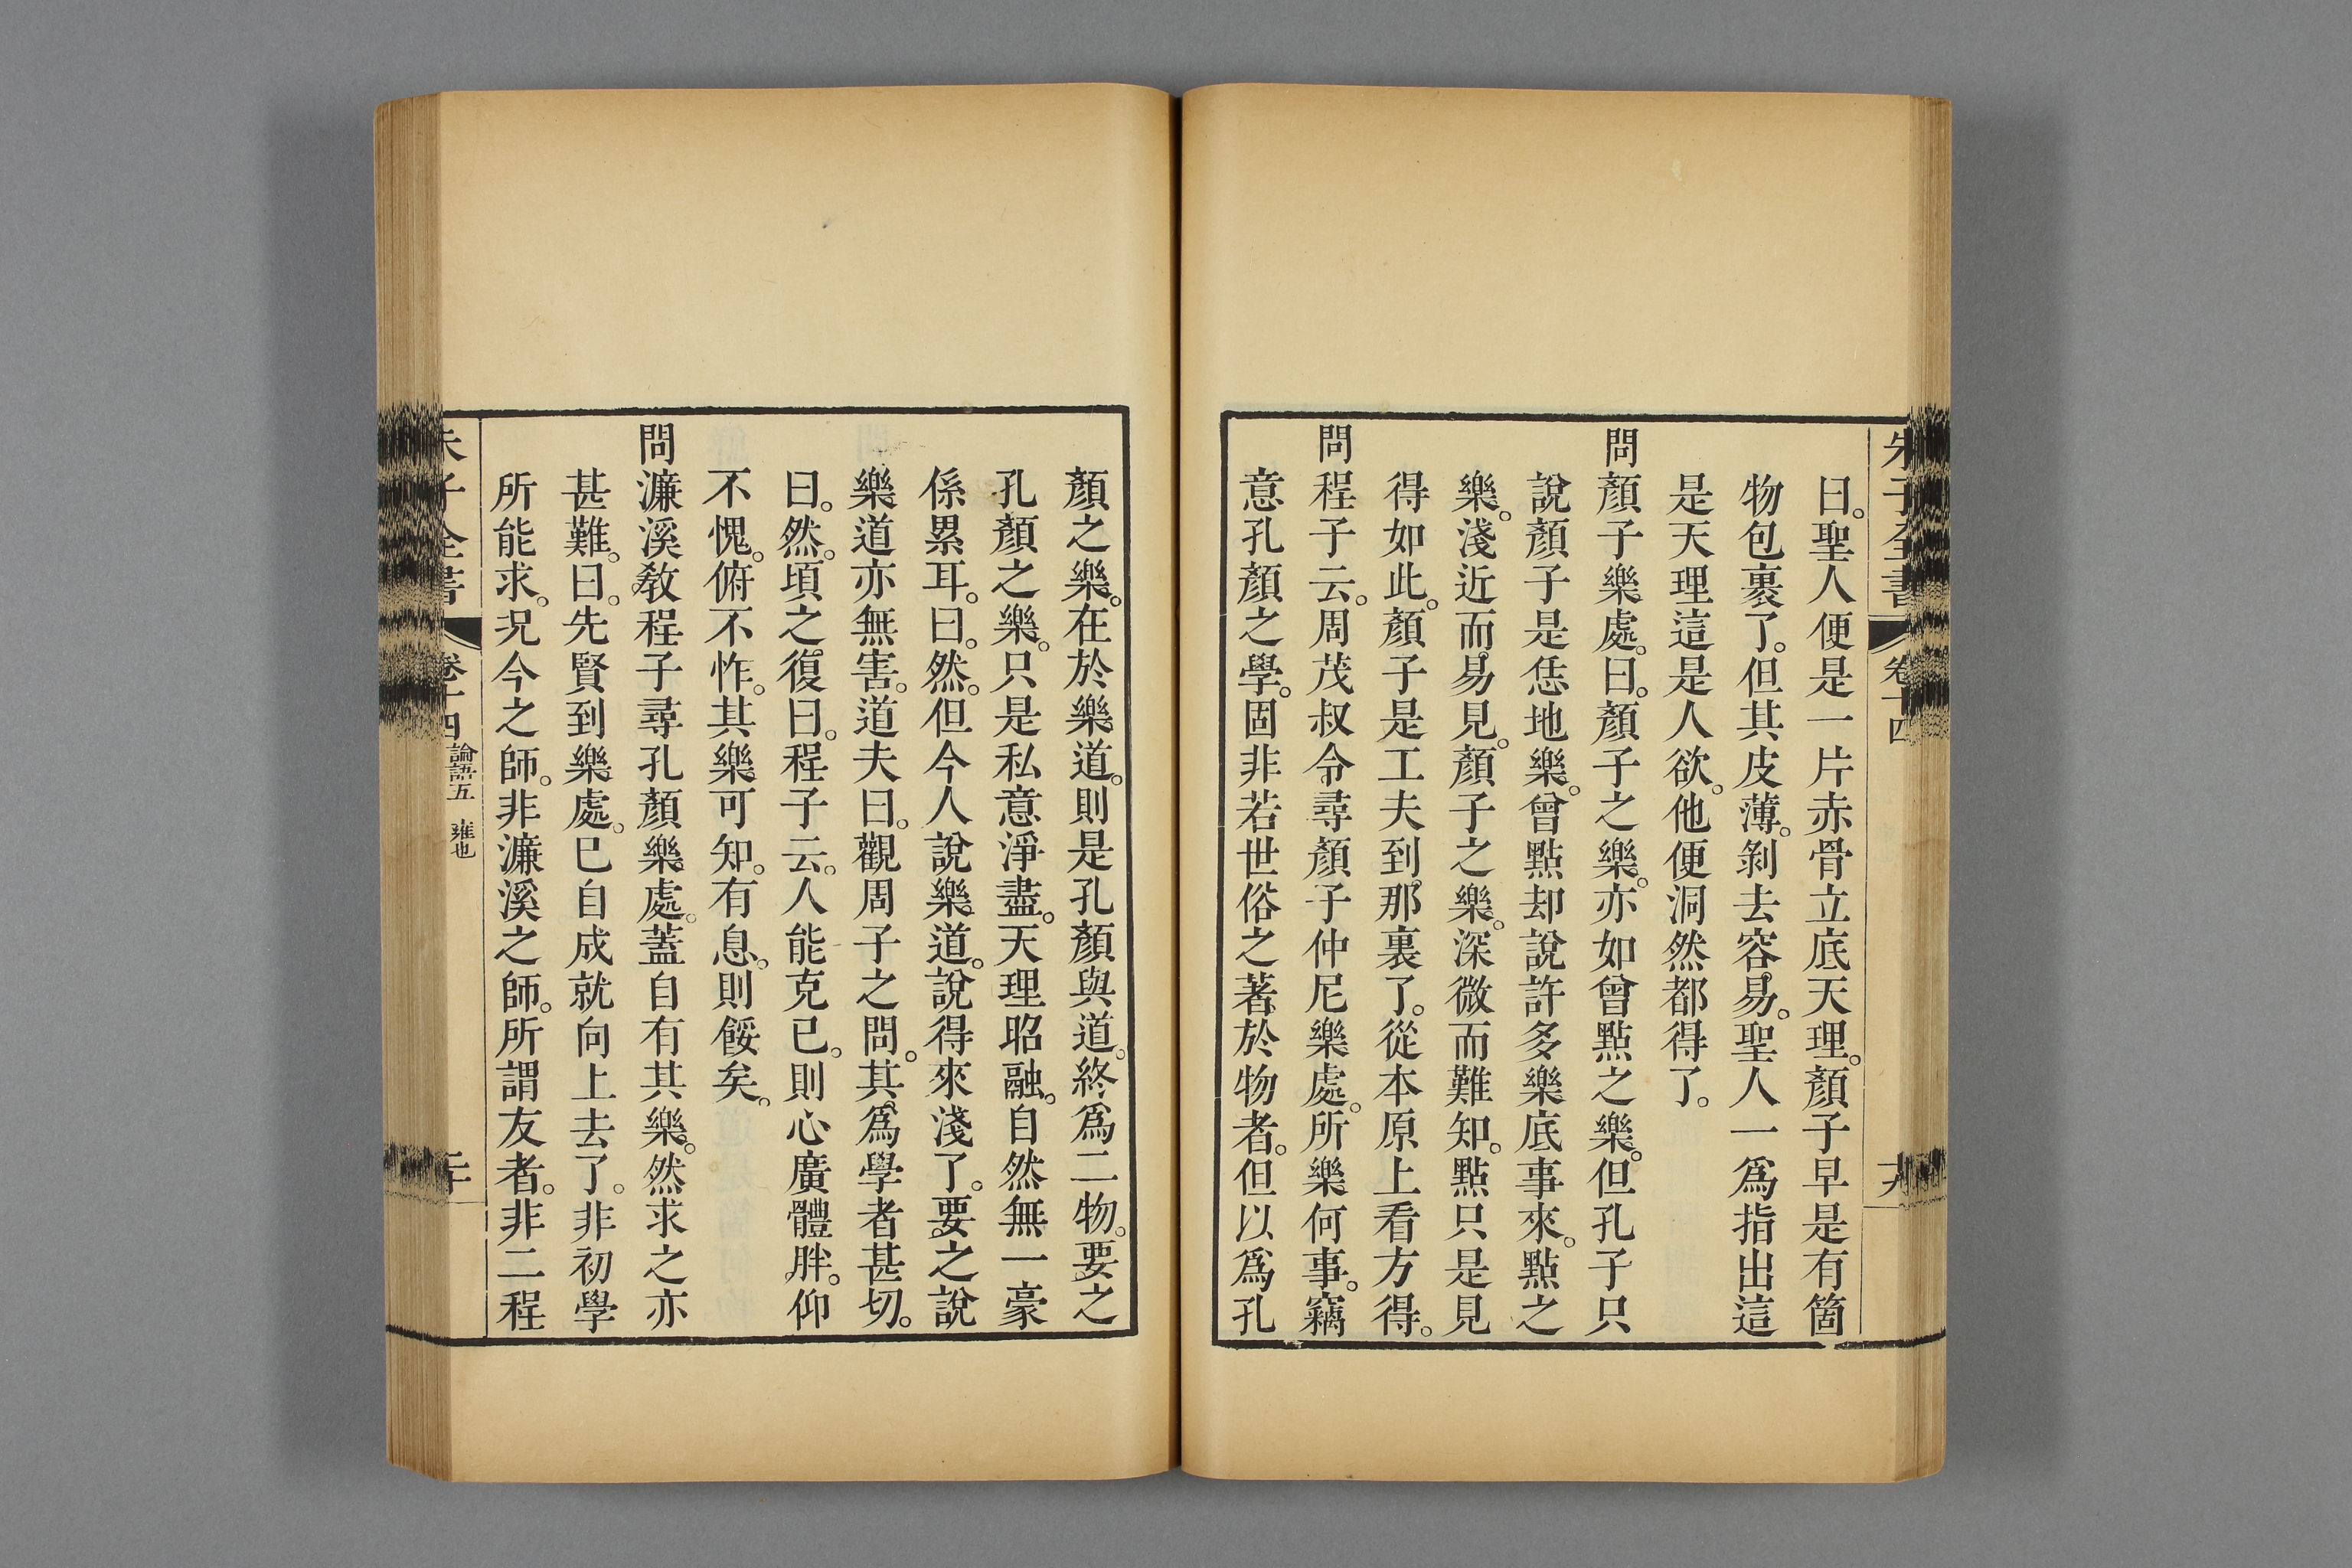 朱子全書 卷十四
曰。聖人便是一片赤骨立底天理。顏子早是有箇
物包裹了。但其皮薄。剝去容易。聖人一爲指出這
是天理這是人欲。他便洞然都得了。
問顏子樂處。曰。顏子之樂。亦如曾點之樂。但孔子只
說顏子是恁地樂。曾點却說許多樂底事來。點之
樂。淺近而易見。顏子之樂。深微而難知。點只是見
得如此。顏子是工夫到那裏了。從本原上看方得。
問程子云。周茂叔令尋顏子仲尼樂處。所樂何事。竊
意孔顏之學。固非若世俗之著於物者。但以爲孔
顏之樂。在於樂道。則是孔顏與道。終爲二物。要之
孔顏之樂。只是私意淨盡。天理昭融。自然無一豪
係累耳。曰。然。但今人說樂道。說得來淺了。要之說
樂道亦無害。道夫曰。觀周子之問。其爲學者甚切。
曰。然。頃之復曰。程子云。人能克己。則心廣體胖。仰
不愧。俯不怍。其樂可知。有息。則餒矣。
問濂溪敎程子尋孔顏樂處。蓋自有其樂。然求之亦
甚難。曰。先賢到樂處。已自成就向上去了。非初學
所能求。況今之師。非濂溪之師。所謂友者。非二程
朱子全書 卷十四 論語五 雍也